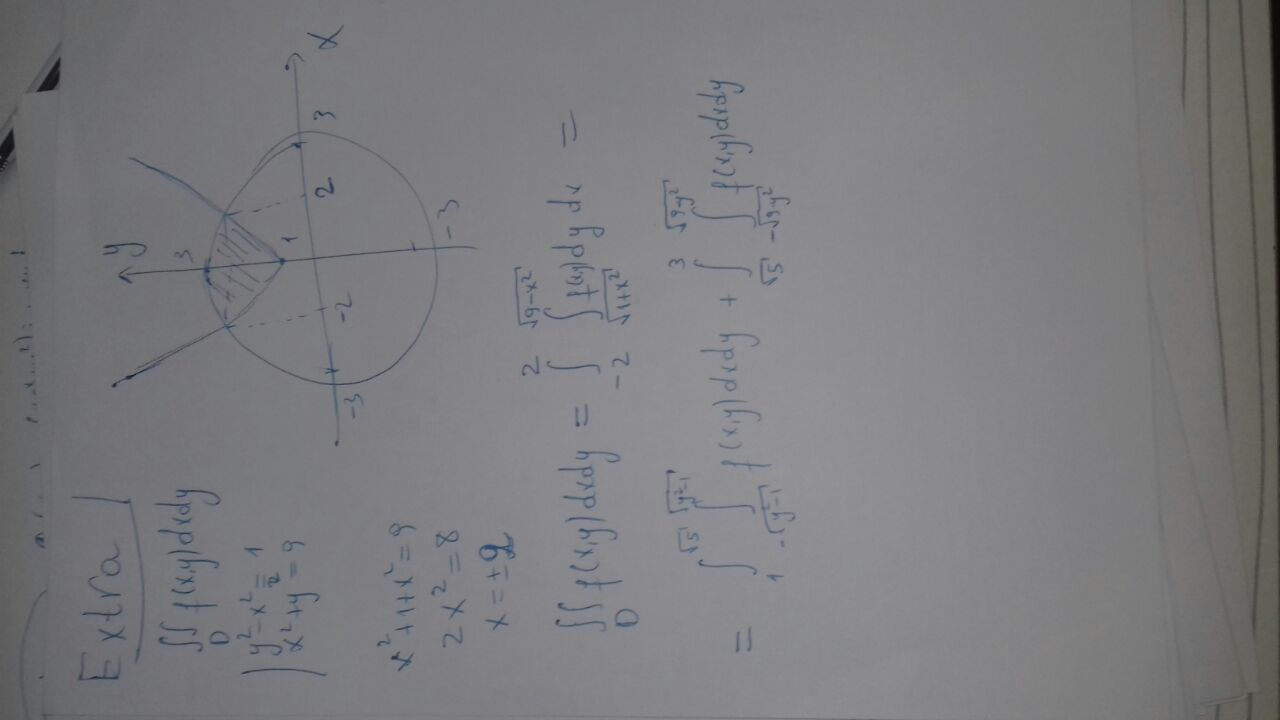 Extra
∬_D f(x,y)dxdy
y²-x²=1
x²+y²=9
x²+1+x²=9
2x²=8
x=±2
y
x
3
1
-2
2
3
-3
-3
∬_D f(x,y)dxdy = ∫_{-2}^{2} ∫_{√(1+x²)}^{√(9-x²)} f(x,y)dy dx =
= ∫_1^{√5} ∫_{-√(y²-1)}^{√(y²-1)} f(x,y)dxdy + ∫_{√5}^3 ∫_{-√(9-y²)}^{√(9-y²)} f(x,y)dxdy